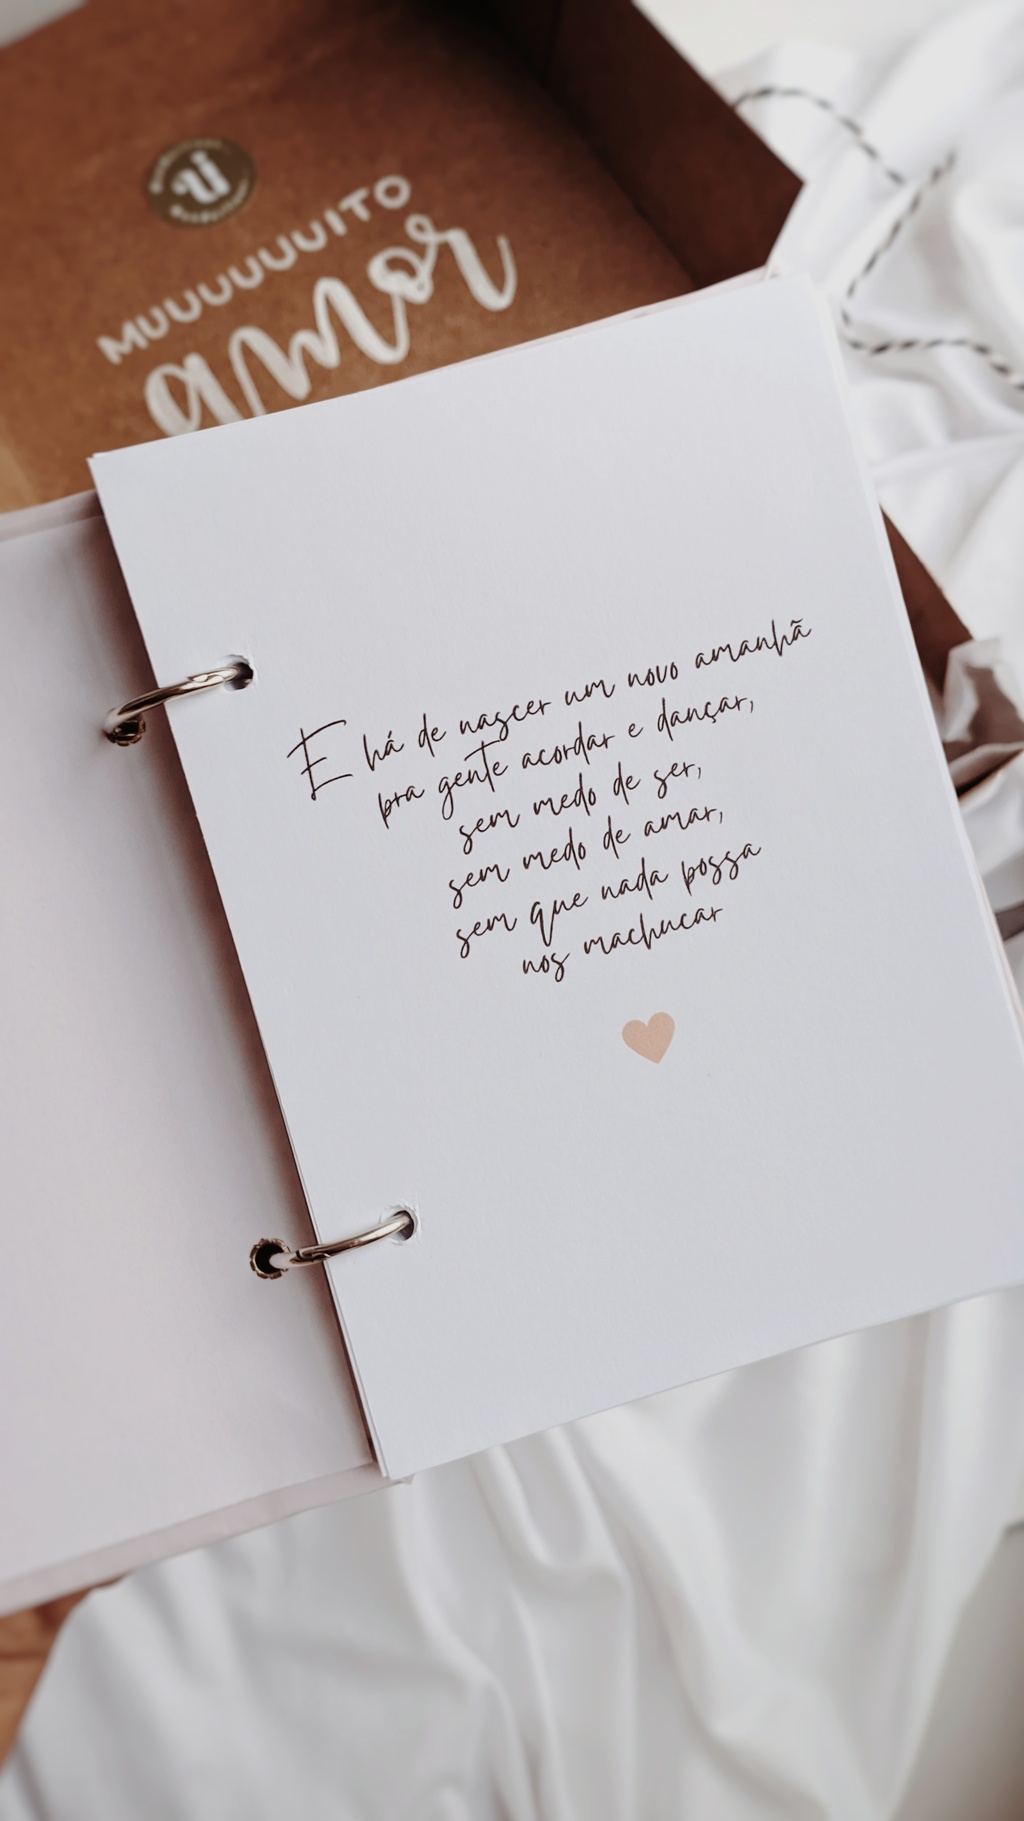 MUUUUUUITO
amor
E há de nascer um novo amanhã
pra gente acordar e dançar,
sem medo de ser,
sem medo de amar,
sem que nada possa
nos machucar